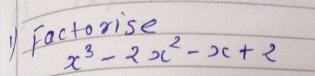 1) Factorise
x³ - 2x² - x + 2